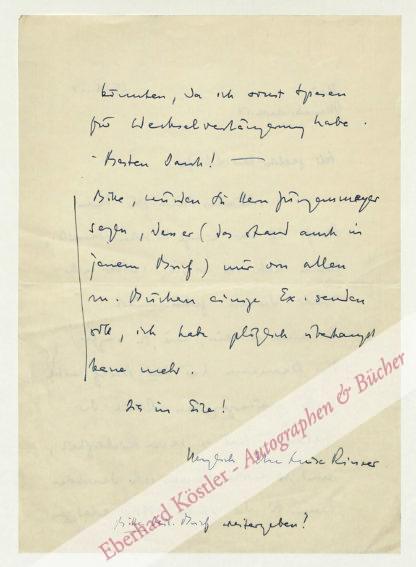 könnten, da ich sonst Spesen
für Wechselverlängerung habe.
- Besten Dank! —
Bitte, würden Sie Herrn Jungensmayer
sagen, dass er (das stand auch in
jenem Brief) mir von allen
m. Büchern einige Ex. senden
solle, ich habe plötzlich überhaupt
keine mehr.
Dies in Eile!
Herzlich Ihre Luise Rinser
Bitte beil. Brief weitergeben?
Eberhard Köstler - Autographen & Bücher